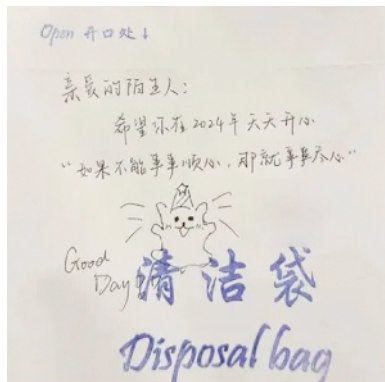 Open 开口处↓
亲爱的陌生人：
希望你在2024年天天开心
“如果不能事事顺心，那就事事尽心”
Good
Day
清洁袋
Disposal bag